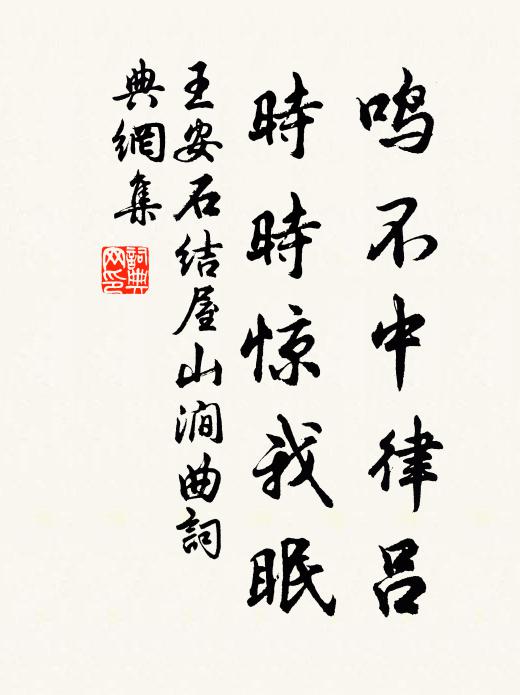 鸣不中律吕
時時惊我眠
王安石结屋山涧曲詞
典網集
詞典
网印